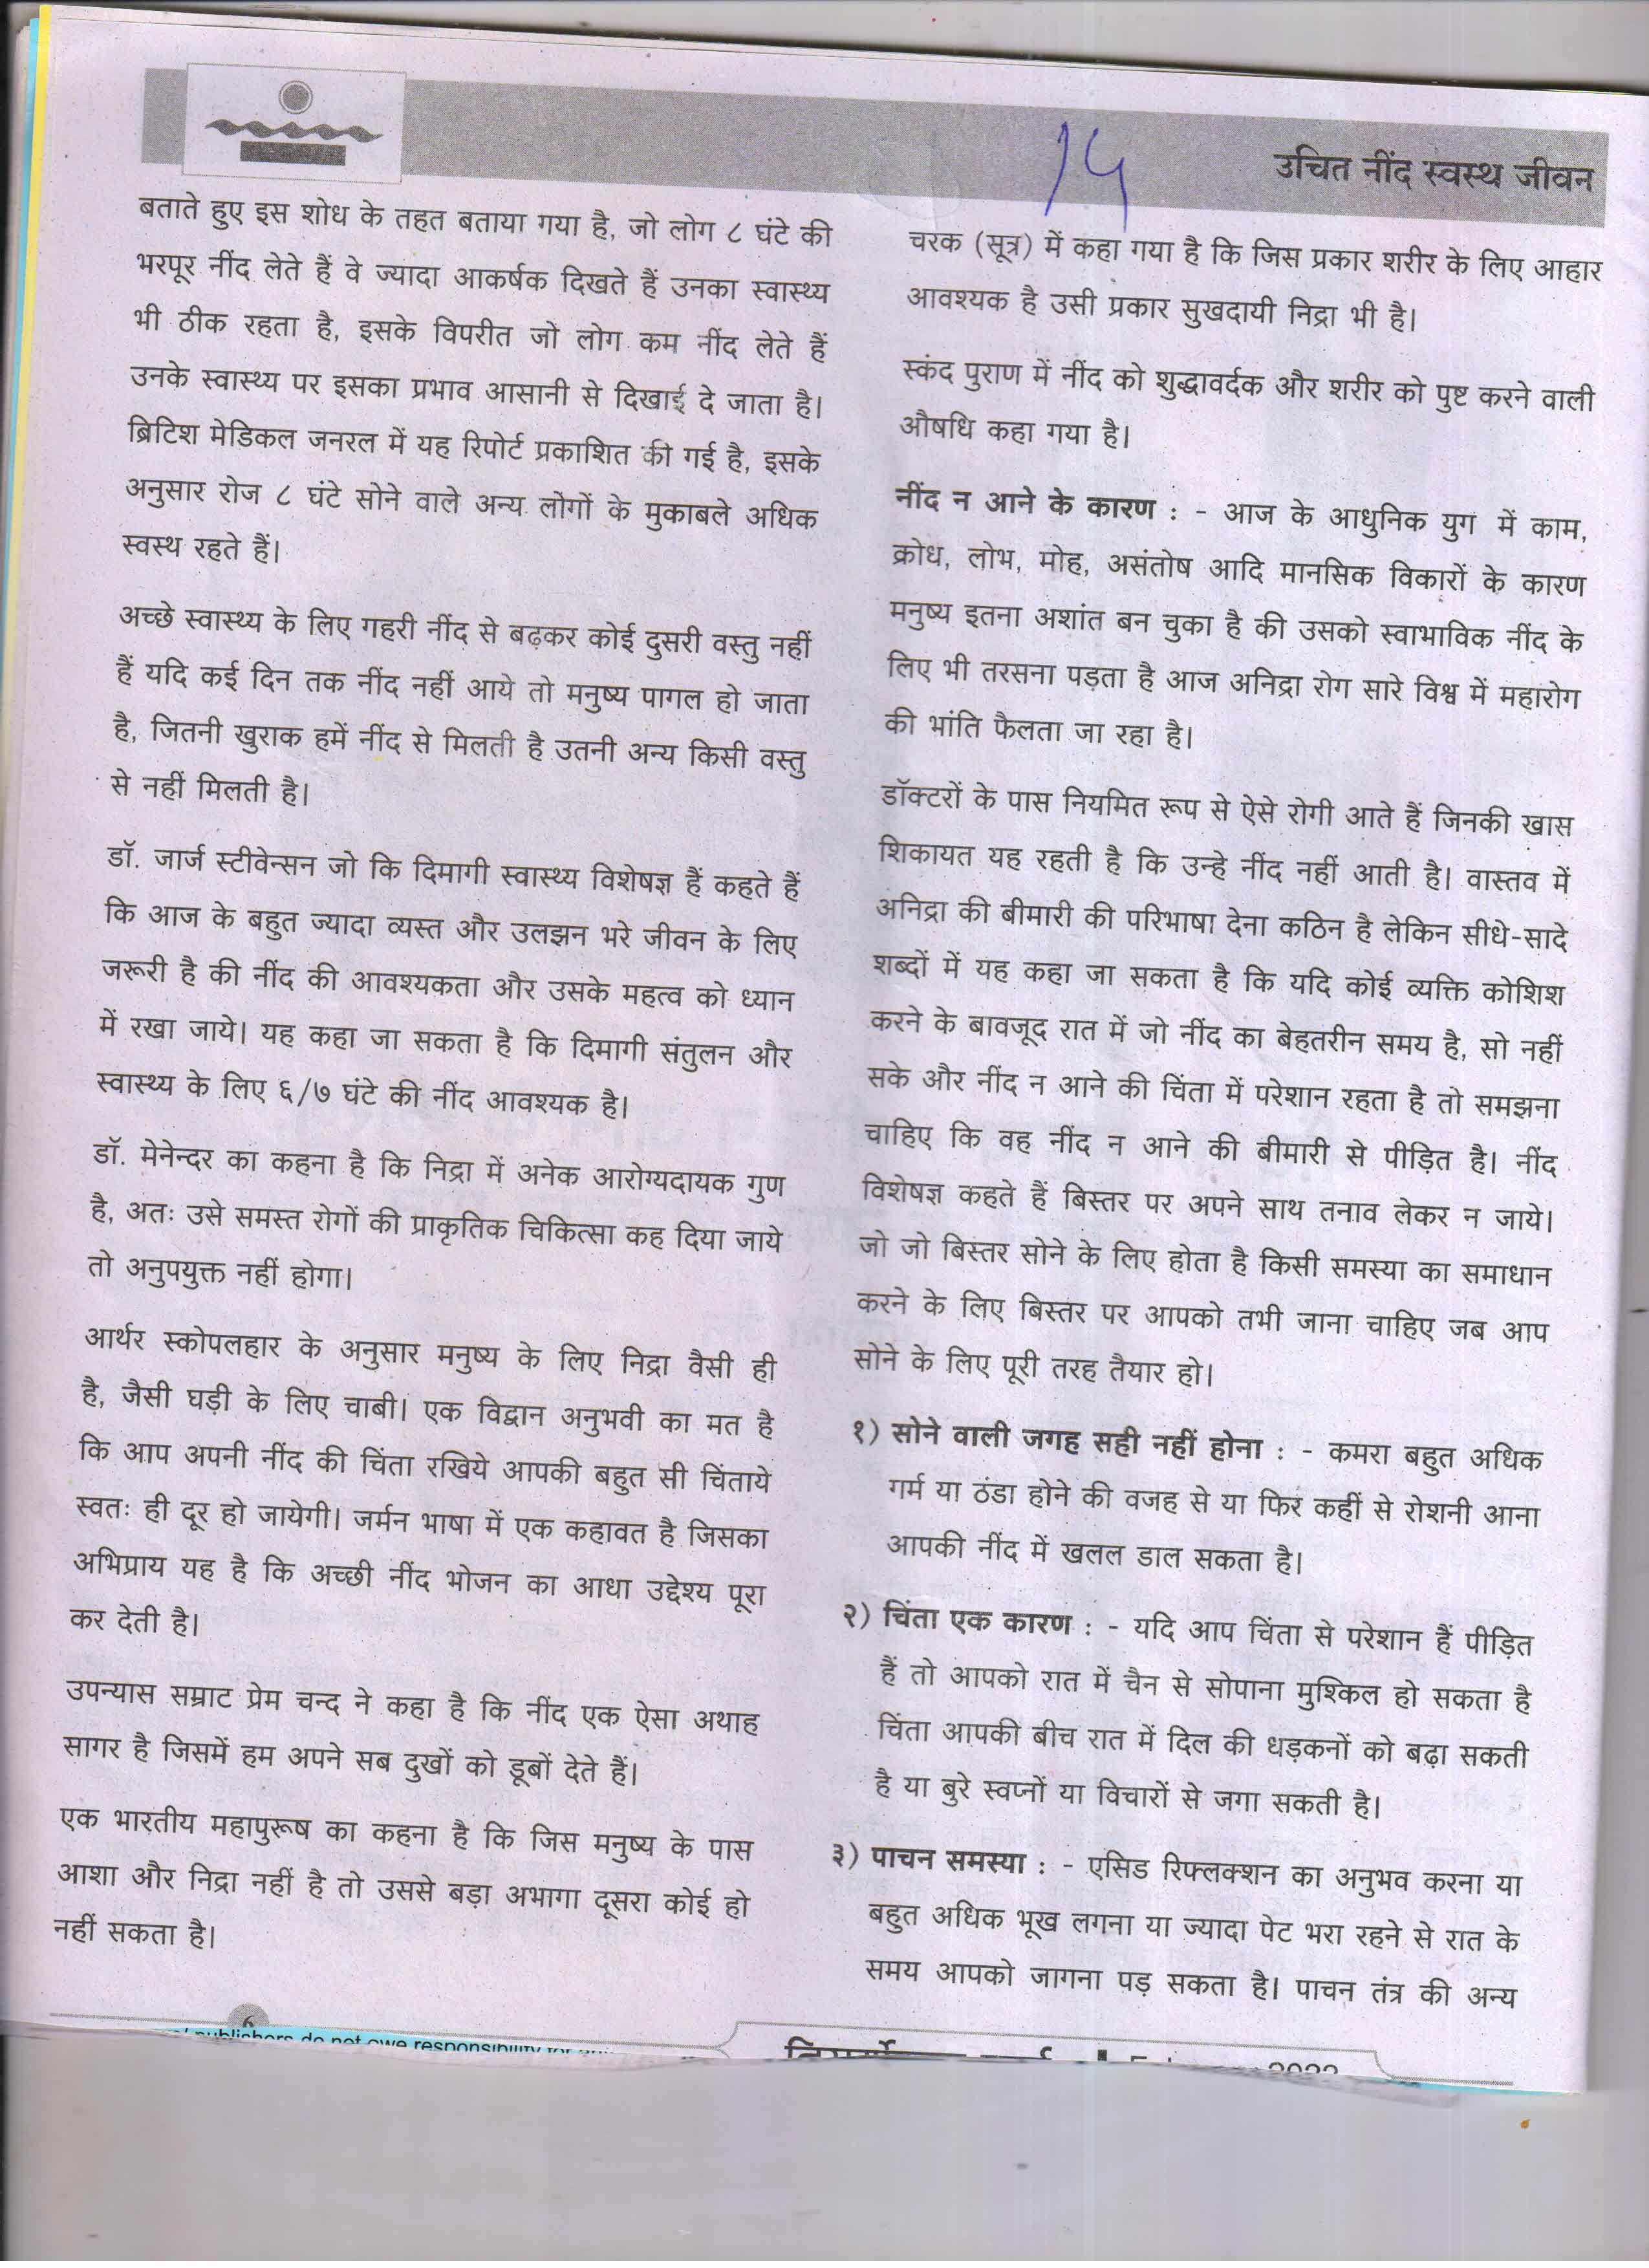 १५
उचित नींद स्वस्थ जीवन
बताते हुए इस शोध के तहत बताया गया है, जो लोग ८ घंटे की
भरपूर नींद लेते हैं वे ज्यादा आकर्षक दिखते हैं उनका स्वास्थ्य
भी ठीक रहता है, इसके विपरीत जो लोग कम नींद लेते हैं
उनके स्वास्थ्य पर इसका प्रभाव आसानी से दिखाई दे जाता है।
ब्रिटिश मेडिकल जनरल में यह रिपोर्ट प्रकाशित की गई है, इसके
अनुसार रोज ८ घंटे सोने वाले अन्य लोगों के मुकाबले अधिक
स्वस्थ रहते हैं।
अच्छे स्वास्थ्य के लिए गहरी नींद से बढ़कर कोई दुसरी वस्तु नहीं
हैं यदि कई दिन तक नींद नहीं आये तो मनुष्य पागल हो जाता
है, जितनी खुराक हमें नींद से मिलती है उतनी अन्य किसी वस्तु
से नहीं मिलती है।
डॉ. जार्ज स्टीवेन्सन जो कि दिमागी स्वास्थ्य विशेषज्ञ हैं कहते हैं
कि आज के बहुत ज्यादा व्यस्त और उलझन भरे जीवन के लिए
जरूरी है की नींद की आवश्यकता और उसके महत्व को ध्यान
में रखा जाये। यह कहा जा सकता है कि दिमागी संतुलन और
स्वास्थ्य के लिए ६/७ घंटे की नींद आवश्यक है।
डॉ. मेनेन्दर का कहना है कि निद्रा में अनेक आरोग्यदायक गुण
है, अतः उसे समस्त रोगों की प्राकृतिक चिकित्सा कह दिया जाये
तो अनुपयुक्त नहीं होगा।
आर्थर स्कोपलहार के अनुसार मनुष्य के लिए निद्रा वैसी ही
है, जैसी घड़ी के लिए चाबी। एक विद्वान अनुभवी का मत है
कि आप अपनी नींद की चिंता रखिये आपकी बहुत सी चिंताये
स्वतः ही दूर हो जायेगी। जर्मन भाषा में एक कहावत है जिसका
अभिप्राय यह है कि अच्छी नींद भोजन का आधा उद्देश्य पूरा
कर देती है।
उपन्यास सम्राट प्रेम चन्द ने कहा है कि नींद एक ऐसा अथाह
सागर है जिसमें हम अपने सब दुखों को डूबों देते हैं।
एक भारतीय महापुरूष का कहना है कि जिस मनुष्य के पास
आशा और निद्रा नहीं है तो उससे बड़ा अभागा दूसरा कोई हो
नहीं सकता है।
चरक (सूत्र) में कहा गया है कि जिस प्रकार शरीर के लिए आहार
आवश्यक है उसी प्रकार सुखदायी निद्रा भी है।
स्कंद पुराण में नींद को शुद्धावर्दक और शरीर को पुष्ट करने वाली
औषधि कहा गया है।
नींद न आने के कारण : - आज के आधुनिक युग में काम,
क्रोध, लोभ, मोह, असंतोष आदि मानसिक विकारों के कारण
मनुष्य इतना अशांत बन चुका है की उसको स्वाभाविक नींद के
लिए भी तरसना पड़ता है आज अनिद्रा रोग सारे विश्व में महारोग
की भांति फैलता जा रहा है।
डॉक्टरों के पास नियमित रूप से ऐसे रोगी आते हैं जिनकी खास
शिकायत यह रहती है कि उन्हे नींद नहीं आती है। वास्तव में
अनिद्रा की बीमारी की परिभाषा देना कठिन है लेकिन सीधे-सादे
शब्दों में यह कहा जा सकता है कि यदि कोई व्यक्ति कोशिश
करने के बावजूद रात में जो नींद का बेहतरीन समय है, सो नहीं
सके और नींद न आने की चिंता में परेशान रहता है तो समझना
चाहिए कि वह नींद न आने की बीमारी से पीड़ित है। नींद
विशेषज्ञ कहते हैं बिस्तर पर अपने साथ तनाव लेकर न जाये।
जो जो बिस्तर सोने के लिए होता है किसी समस्या का समाधान
करने के लिए बिस्तर पर आपको तभी जाना चाहिए जब आप
सोने के लिए पूरी तरह तैयार हो।
१) सोने वाली जगह सही नहीं होना : - कमरा बहुत अधिक
गर्म या ठंडा होने की वजह से या फिर कहीं से रोशनी आना
आपकी नींद में खलल डाल सकता है।
२) चिंता एक कारण : - यदि आप चिंता से परेशान हैं पीड़ित
हैं तो आपको रात में चैन से सोपाना मुश्किल हो सकता है
चिंता आपकी बीच रात में दिल की धड़कनों को बढ़ा सकती
है या बुरे स्वप्नों या विचारों से जगा सकती है।
३) पाचन समस्या : - एसिड रिफ्लक्शन का अनुभव करना या
बहुत अधिक भूख लगना या ज्यादा पेट भरा रहने से रात के
समय आपको जागना पड़ सकता है। पाचन तंत्र की अन्य
6
publishers do not owe responsibility for
2022